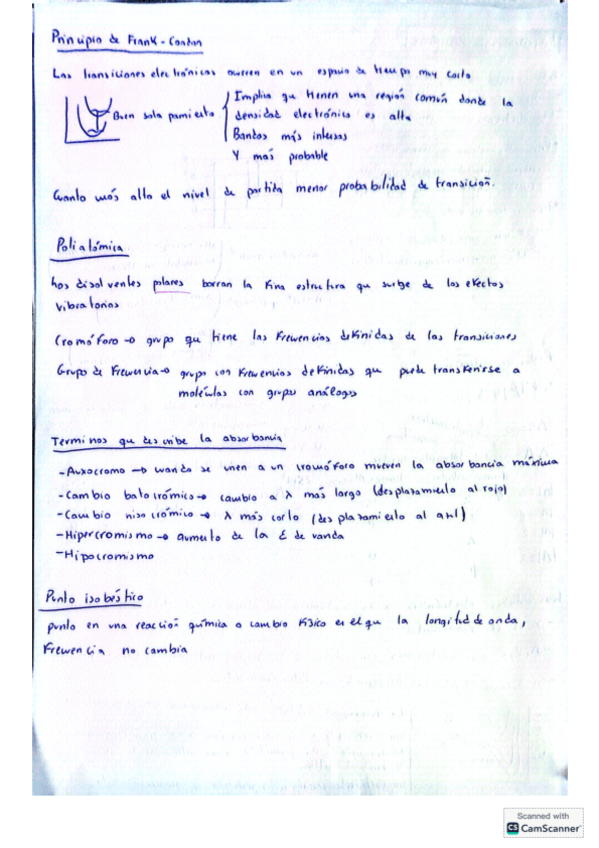 Principio de Frank-Condon
Las transiciones electrónicas ocurren en un espacio de tiempo muy corto
Buen solapamiento
Implica que tienen una región común donde la
densidad electrónica es alta
Bandas más intensas
Y mas probable
Cuanto más alto el nivel de partida menor probabilidad de transición.
Poliatómica
Los disolventes polares borran la fina estructura que surge de los efectos
vibratorios
Cromóforo → grupo que tiene las frecuencias definidas de las transiciones
Grupo de frecuencia → grupo con frecuencias definidas que puede transferirse a
moléculas con grupos análogos
Terminos que describe la absorbancia
- Auxocromo → cuando se unen a un cromóforo mueven la absorbancia máxima
- Cambio batocrómico → cambio a λ más largo (desplazamiento al rojo)
- Cambio hisocrómico → λ más corto (desplazamiento al azul)
- Hipercromismo → aumento de la ε de vanda
- Hipocromismo
Punto isobéstico
punto en una reacción química o cambio físico en el que la longitud de onda,
frecuencia no cambia
Scanned with
CS CamScanner